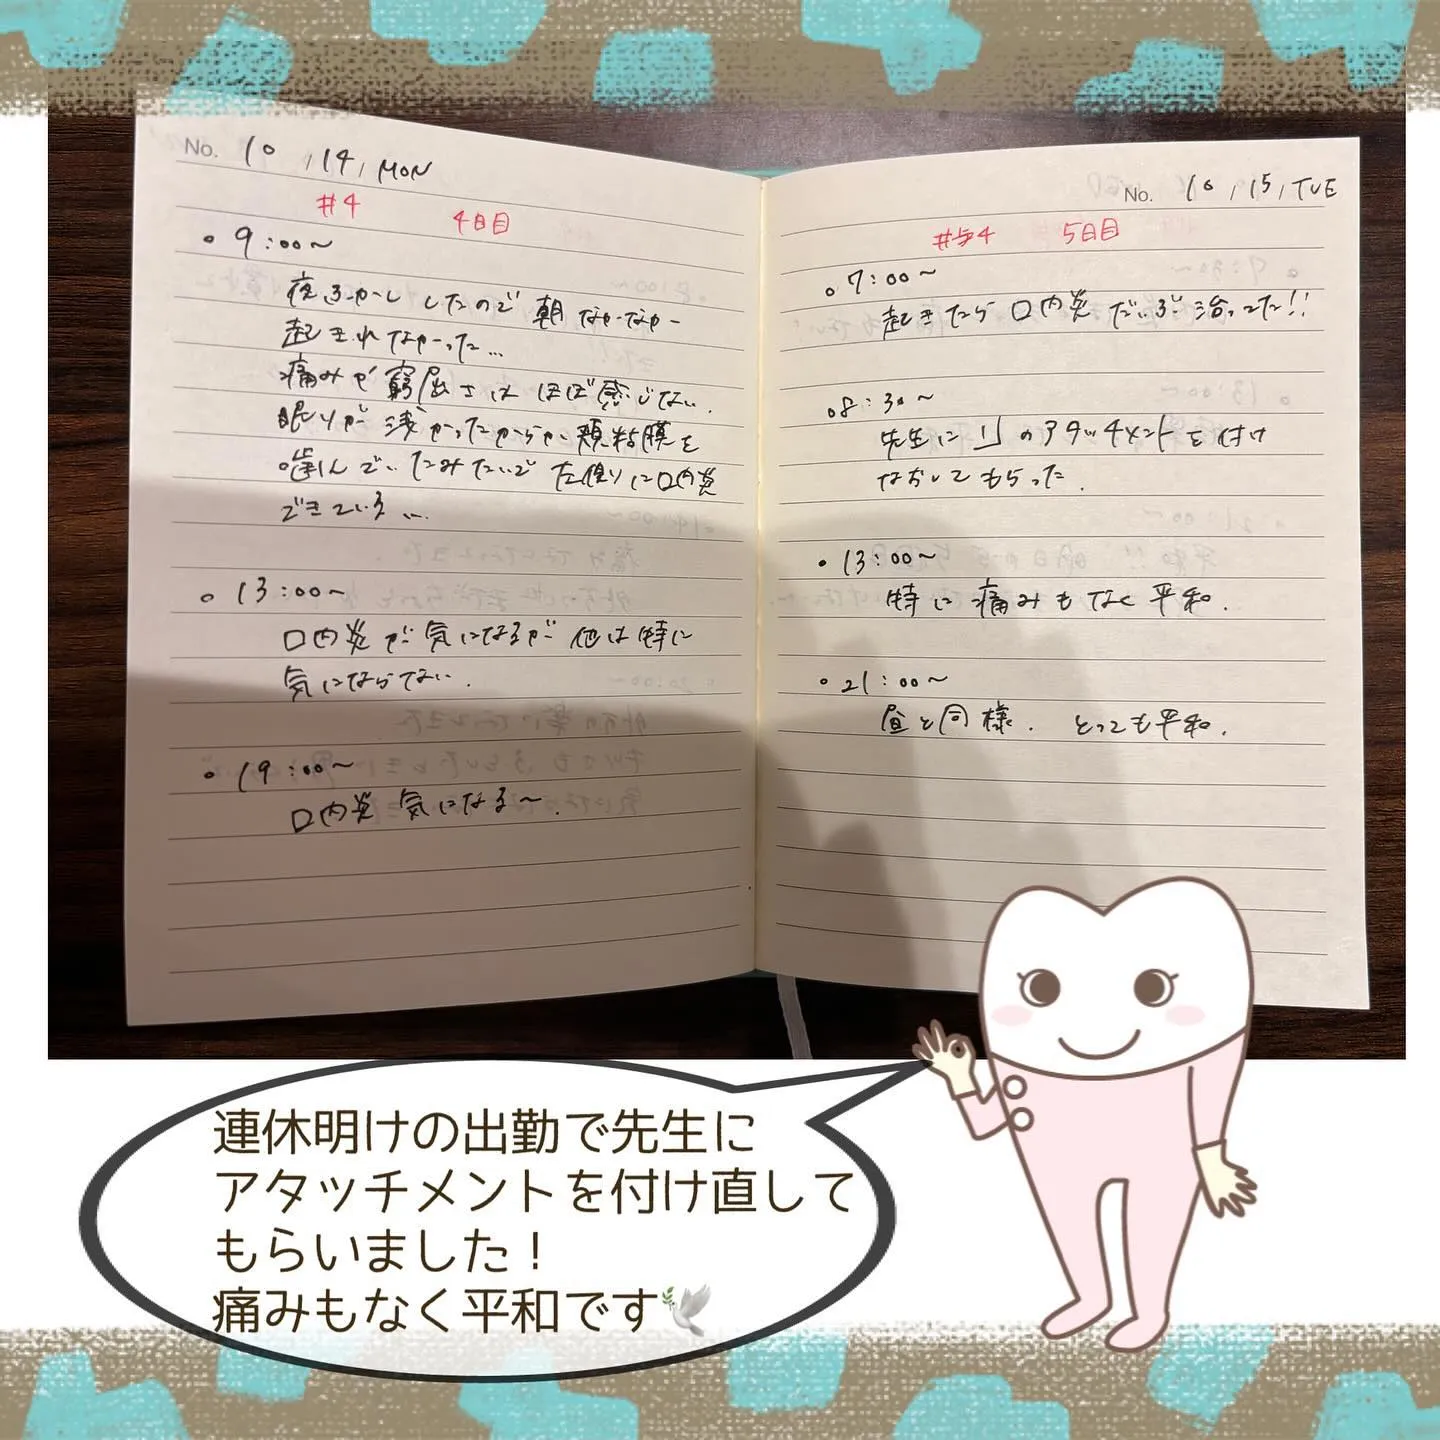 No. 10 , 14 , MON
#4 4日目
• 9:00〜
夜ふかししたので朝なかなか
起きれなかった…
痛みや窮屈さはほぼ感じない.
眠りが浅かったからか頬粘膜を
噛んでいたみたいで左側りに口内炎
できている…
• 13:00〜
口内炎が気になるが他は特に
気にならない.
• 19:00〜
口内炎気になる〜.
No. 10 , 15 , TUE
#4 5日目
• 7:00〜
起きたら口内炎だいぶ治った!!
• 8:30〜
先生に 1┘ のアタッチメントを付け
なおしてもらった.
• 13:00〜
特に痛みもなく平和.
• 21:00〜
昼と同様. とっても平和.
連休明けの出勤で先生に
アタッチメントを付け直して
もらいました！
痛みもなく平和です🕊️